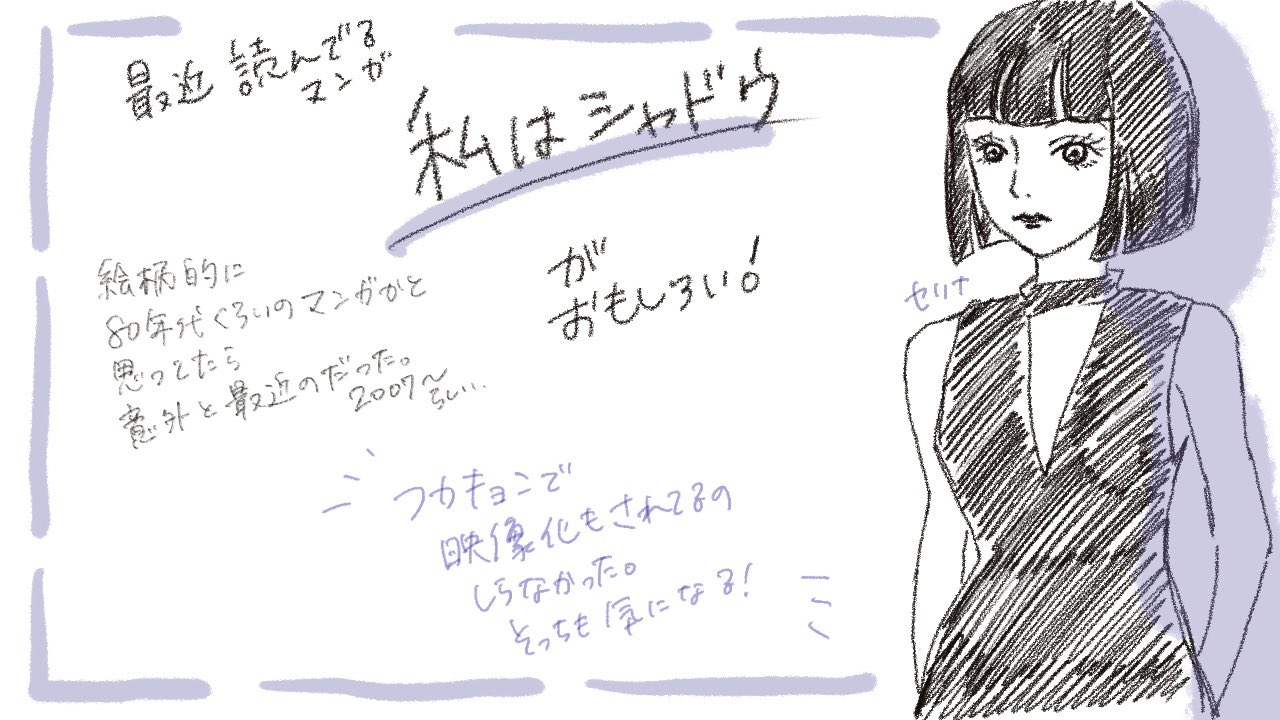 最近 読んでる
マンガ
私はシャドウ
が
おもしろい!
絵柄的に
80年代くらいのマンガかと
思ってたら
意外と最近のだった。
2007〜
らしい..
フカキョンで
映像化もされてるの
しらなかった。
そっちも気になる!
セリナ